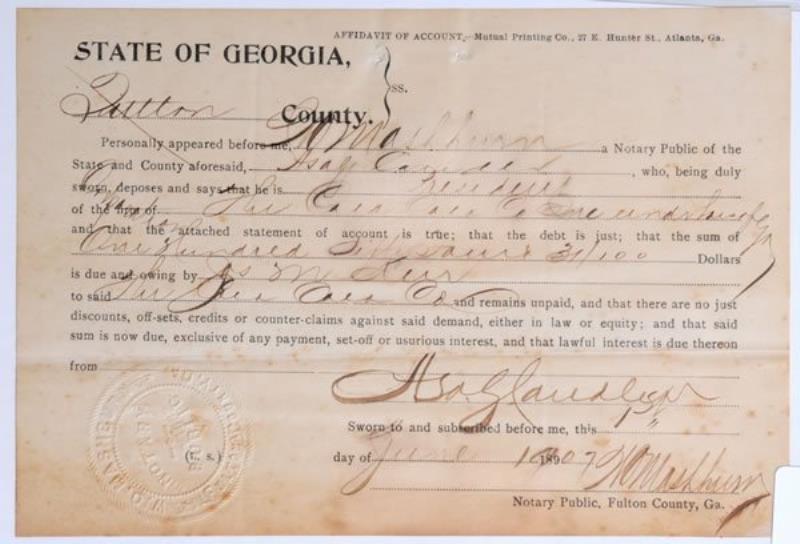 AFFIDAVIT OF ACCOUNT.—Mutual Printing Co., 27 E. Hunter St., Atlanta, Ga.
STATE OF GEORGIA,
ss.
Fulton County.
Personally appeared before me, W O Mashburn a Notary Public of the
State and County aforesaid, Asa G Candler, who, being duly
sworn, deposes and says that he is President
of the firm of The Coca Cola Co
and that the attached statement of account is true; that the debt is just; that the sum of
One Hundred 31/100 Dollars
is due and owing by
to said The Coca Cola Co and remains unpaid, and that there are no just
discounts, off-sets, credits or counter-claims against said demand, either in law or equity; and that said
sum is now due, exclusive of any payment, set-off or usurious interest, and that lawful interest is due thereon
from
Asa G Candler
Sworn to and subscribed before me, this 1st
(L. S.) day of June 1907 W O Mashburn
Notary Public, Fulton County, Ga.